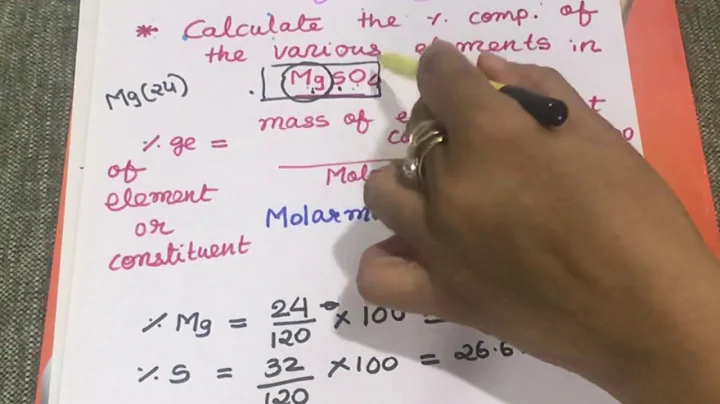 * Calculate the % comp. of
the various elements in
Mg(24) MgSO4
% ge = mass of
of
element
or
constituent
Molarm
% Mg = 24/120 × 100 =
% S = 32/120 × 100 = 26.6